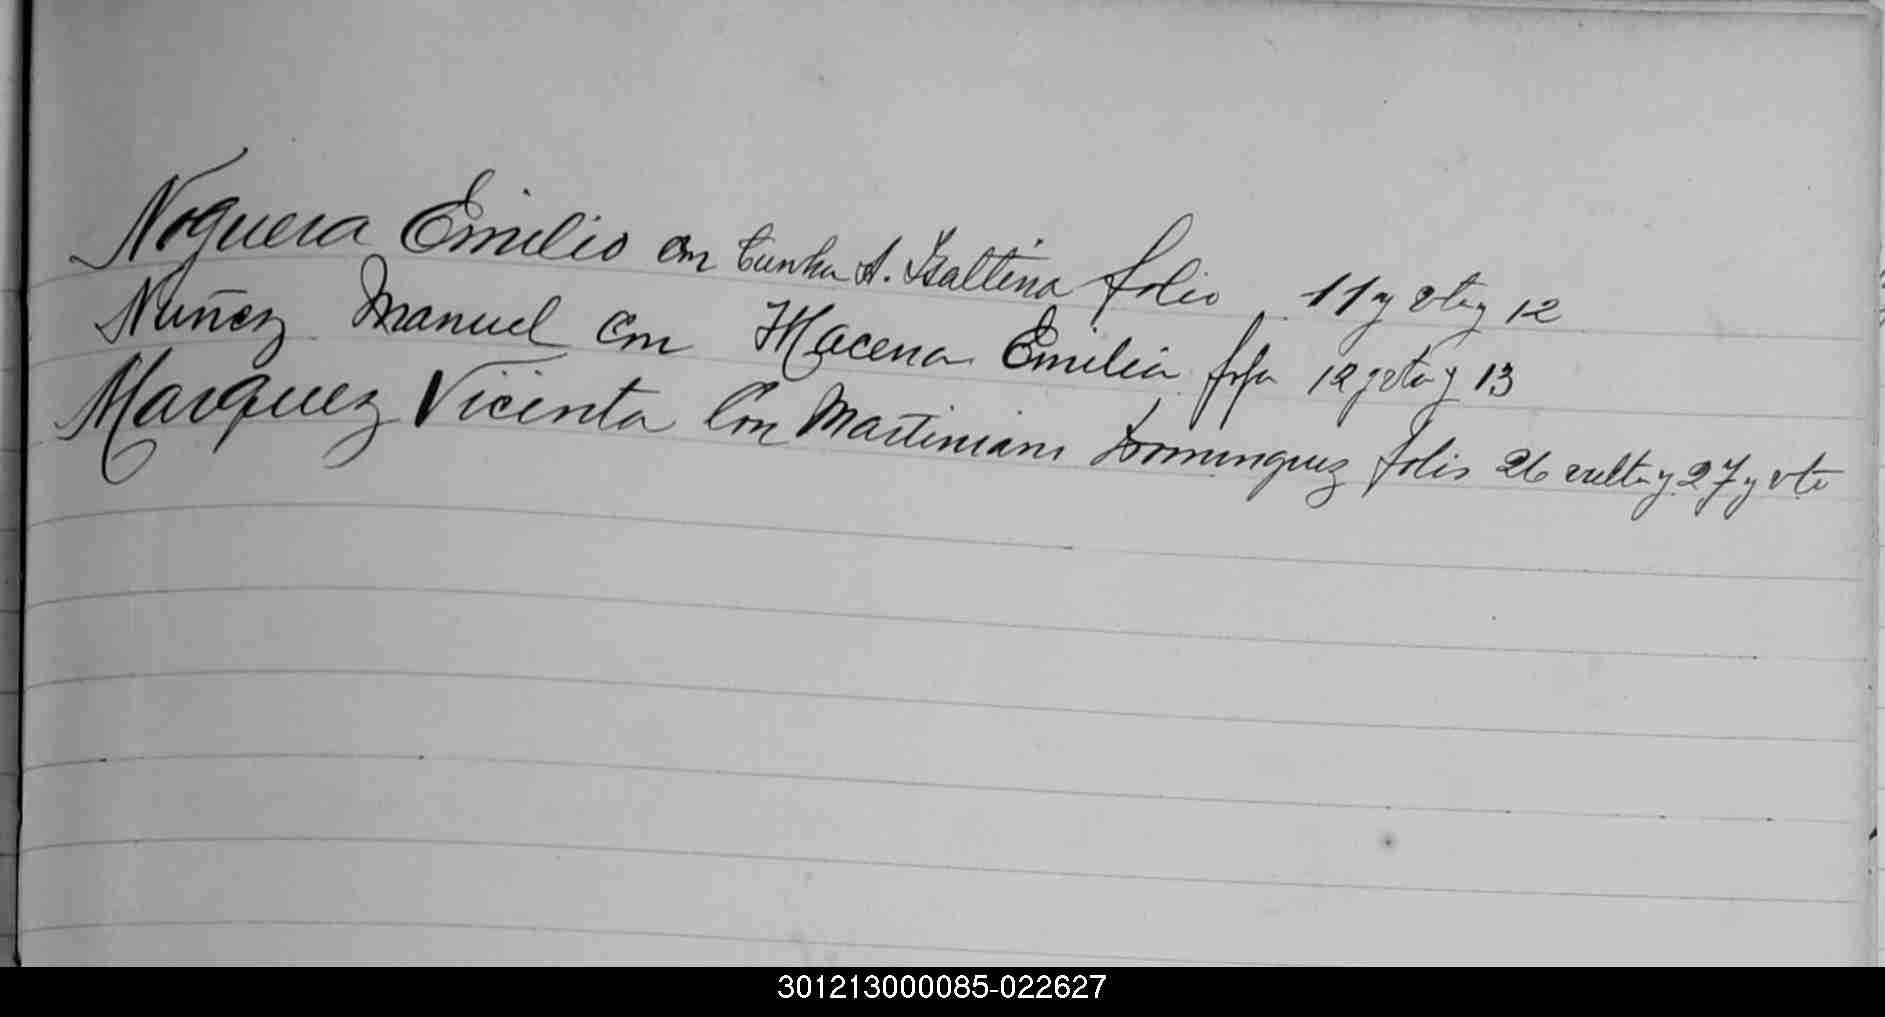 Noguera Emilio con Cunha A. Isaltina folio 11 y vta y 12
Nuñez Manuel con Macena Emilia 12 y vta y 13
Marquez Vicenta con Martiniano Dominguez folio 26 vuelta y 27 y vta
301213000085-022627